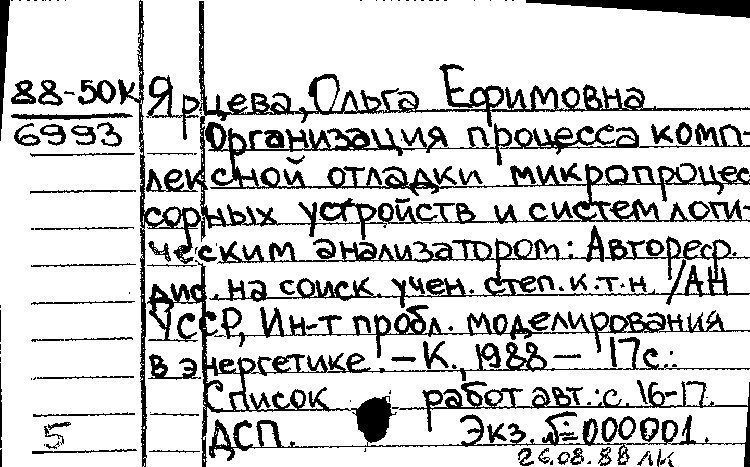 88-50К Ярцева, Ольга Ефимовна
6993 Организация процесса комп-
лексной отладки микропроцес
сорных устройств и систем логи-
ческим анализатором: Автореф.
дис. на соиск. учен. степ. к.т.н. /АН
УССР, Ин-т пробл. моделирования
в энергетике. – К., 1988 – 17с.:
Список работ авт.: с. 16-17.
5 ДСП. Экз. № 000001.
26.08.88 лк